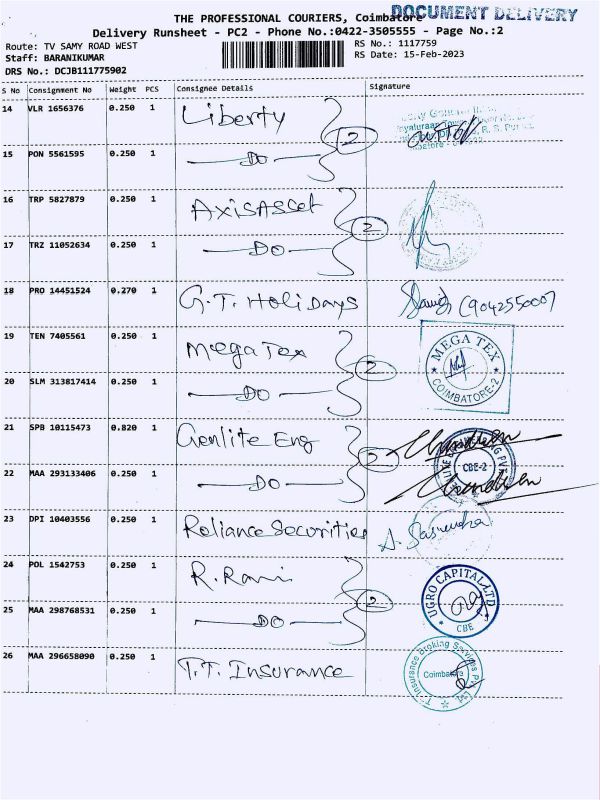 THE PROFESSIONAL COURIERS, Coimbatore
DOCUMENT DELIVERY
Delivery Runsheet - PC2 - Phone No.:0422-3505555 - Page No.:2
Route: TV SAMY ROAD WEST
RS No.: 1117759
Staff: BARANIKUMAR
RS Date: 15-Feb-2023
DRS No.: DCJB111775902
S No Consignment No Weight PCS Consignee Details Signature
14 VLR 1656376 0.250 1 Liberty
2
15 PON 5561595 0.250 1 DO
16 TRP 5827879 0.250 1 AxisAsset
2
17 TRZ 11052634 0.250 1 DO
18 PRO 14451524 0.270 1 G.T. Holidays
19 TEN 7405561 0.250 1 MegaTex
MEGA TEX
COIMBATORE-2
2
20 SLM 313817414 0.250 1 DO
21 SPB 10115473 0.820 1 Genlite Eng
CBE-2
2
22 MAA 293133406 0.250 1 DO
23 DPI 10403556 0.250 1 Reliance Securities
24 POL 1542753 0.250 1 R. Rani
UGRO CAPITAL LTD
CBE
2
25 MAA 298768531 0.250 1 DO
26 MAA 296658090 0.250 1 T.T. Insurance
Insurance Broking Services
Coimbatore